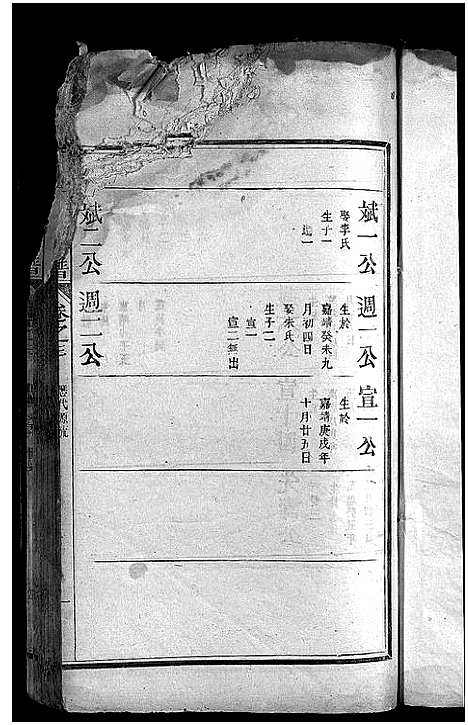 斌一公
娶李氏
生子一
週一
週一公
生於
嘉靖癸未九
月初四日
娶朱氏
生子二
宣一
宣二無出
宣一公
生於
嘉靖庚戌年
十月廿五日
斌二公
週二公
卷之三
歷代源流